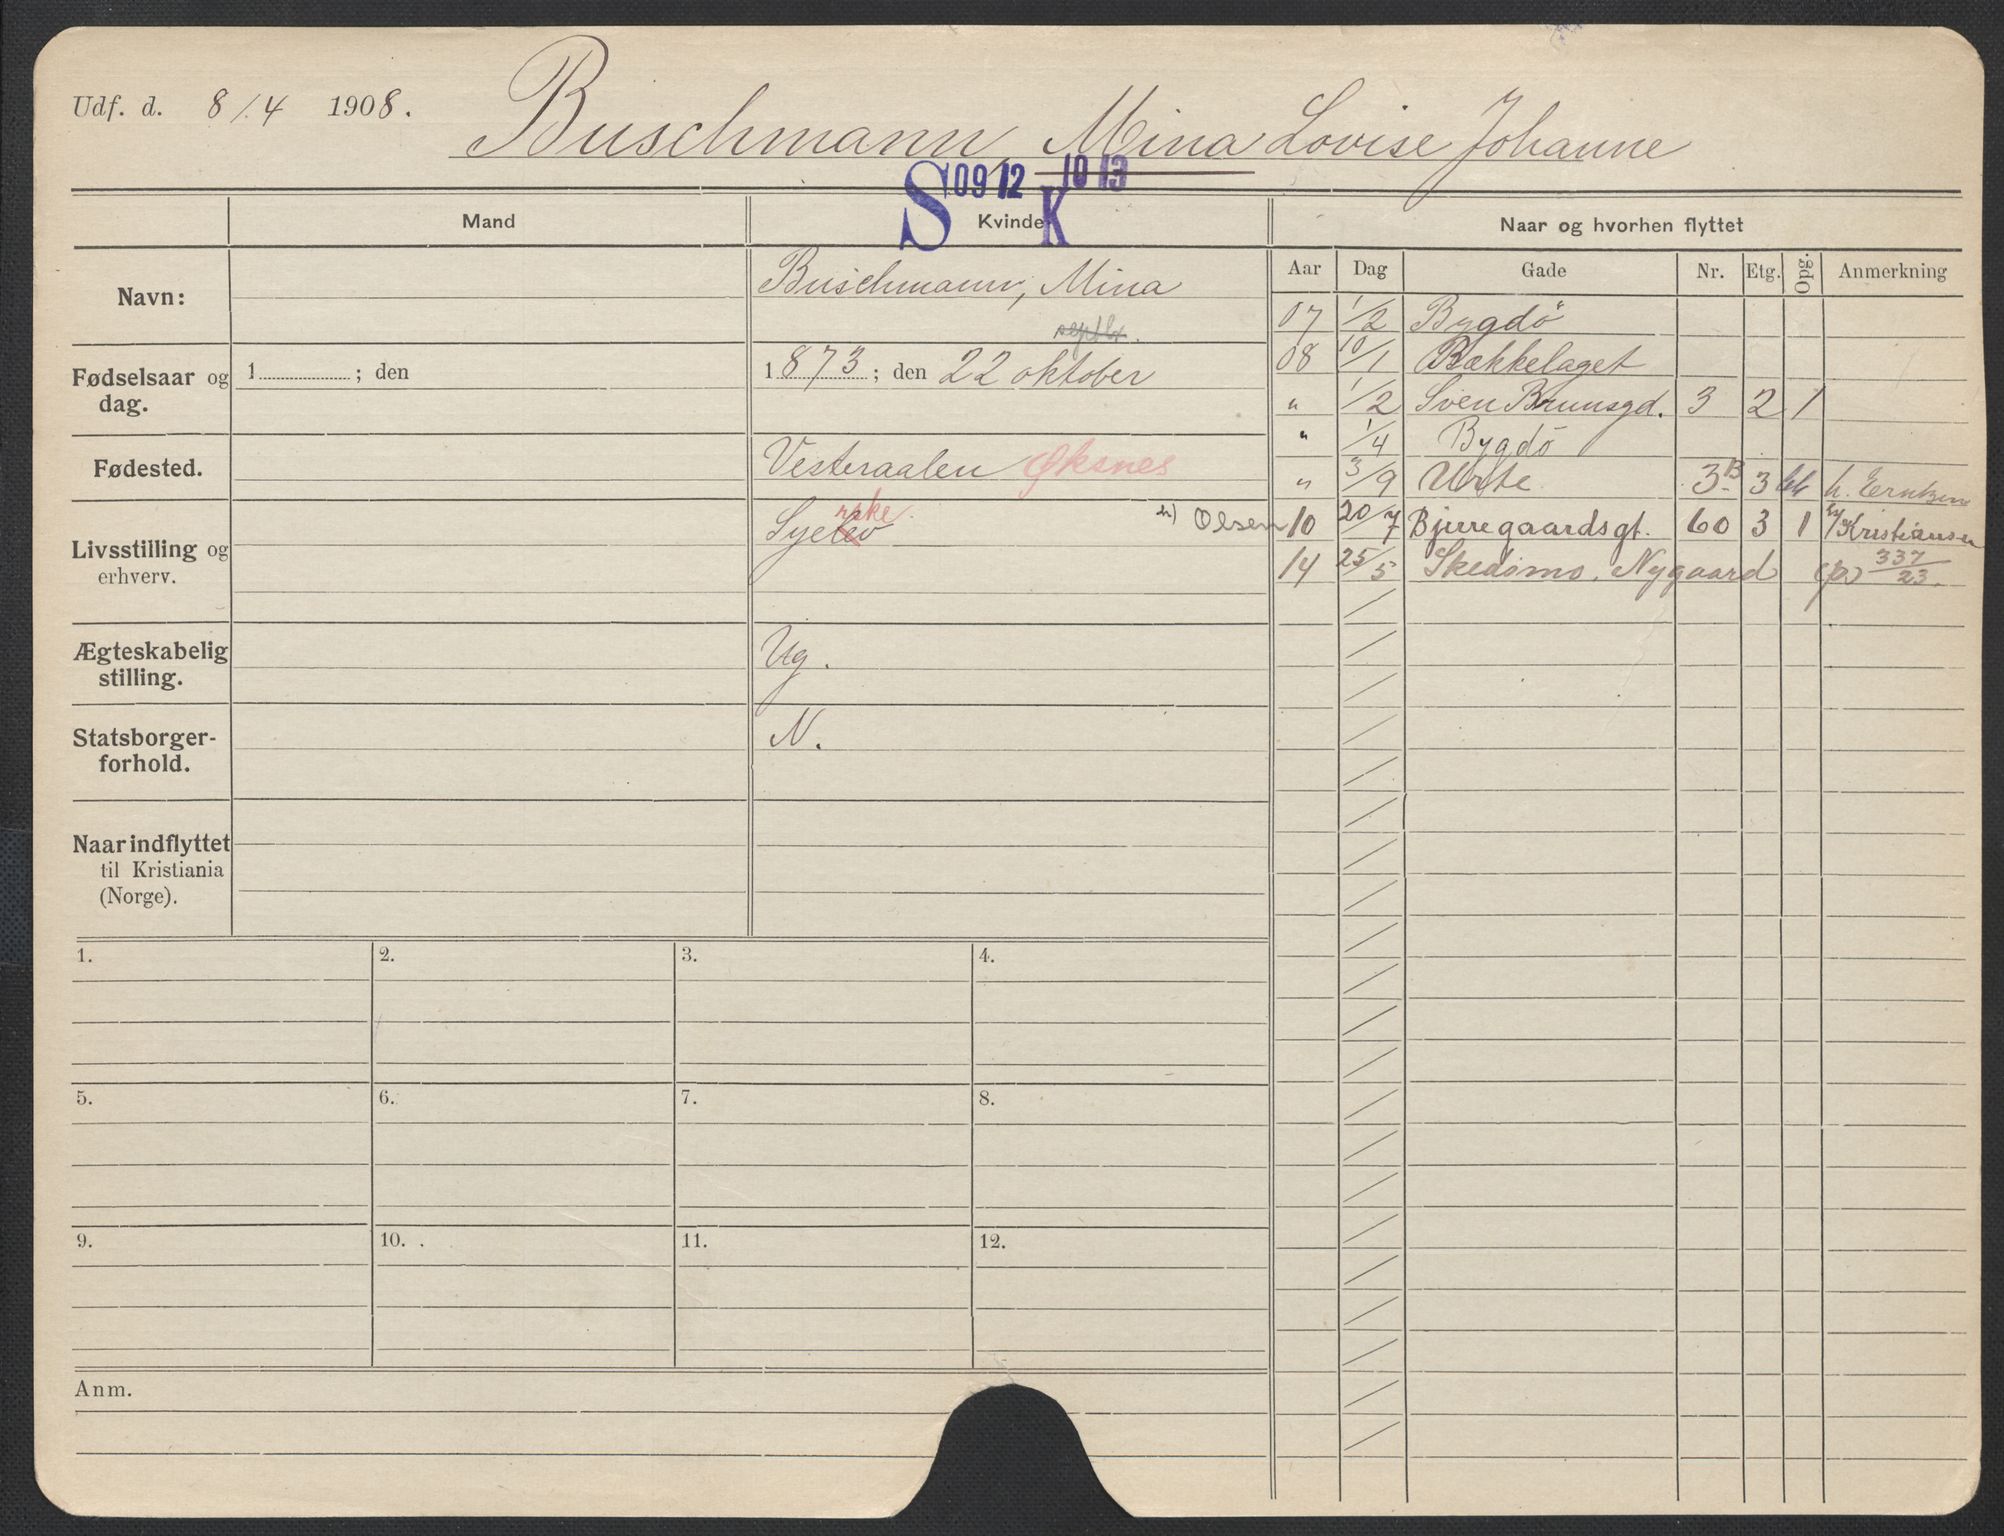 Udf. d. 8/4 1908. Buschmann, Mina Lovise Johanne
S 09 12 K 10 13
Mand Kvinde Naar og hvorhen flyttet
Aar Dag Gade Nr. Etg. Opg. Anmerkning
Navn: Buschmann, Mina
septbr.
Fødselsaar og dag. 1 ; den
1873 ; den 22 oktober
Fødested. Vesteraalen Øksnes
Livsstilling og erhverv. Syelev rske.
Ægteskabelig stilling. Ug.
Statsborgerforhold. N.
Naar indflyttet til Kristiania (Norge).
07 1/2 Bygdö
08 10/1 Bækkelaget
" 1/2 Sven Brunsgd. 3 2 1
" 1/4 Bygdö
" 3/9 Urte 3B 3 h. Erntzen
h) Olsen 10 20/7 Bjerregaardsgt. 60 3 1 h/ Kristiansen
14 25/5 Skedsmo, Nygaard (p) 337/23.
1. 2. 3. 4.
5. 6. 7. 8.
9. 10. 11. 12.
Anm.